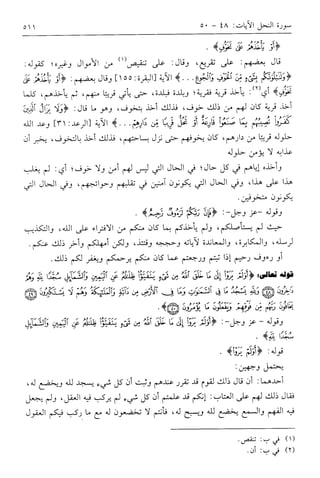 سورة النحل الآيات: ٤٨ - ٥٠
٥١١
﴿أَوْ يَأْخُذَهُمْ عَلَىٰ تَخَوُّفٍ﴾.
قال بعضهم: على تفريع، وقال: على تنقيص(١) من الأموال وغيره؛ كقوله:
﴿وَلَنَبْلُوَنَّكُم بِشَيْءٍ مِّنَ الْخَوْفِ وَالْجُوعِ...﴾ الآية [البقرة: ١٥٥] وقال بعضهم: ﴿أَوْ يَأْخُذَهُمْ عَلَىٰ
تَخَوُّفٍ﴾ أي(٢): يأخذ قرية فقرية؛ وبلدة فبلدة، حتى يأتي قريتًا منهم، ثم يأخذهم، كلما
أخذ قرية كان لهم من ذلك خوف، فذلك أخذ بتخوف، وهو ما قال: ﴿وَلَا يَزَالُ الَّذِينَ
كَفَرُوا تُصِيبُهُم بِمَا صَنَعُوا قَارِعَةٌ أَوْ تَحُلُّ قَرِيبًا مِّن دَارِهِمْ...﴾ الآية [الرعد: ٣١] وعد الله
حلوله قريبًا من دارهم، كان يخوفهم حتى نزل بساحتهم، فذلك أخذ بالتخوف، يخبر أن
عذابه لا يؤمن حلوله
وأخذه إياهم في كل حال؛ في الحال التي ليس لهم أمن ولا خوف؛ أي: لم يغلب
هذا على هذا، وفي الحال التي يكونون آمنين في تقلبهم وحوائجهم، وفي الحال التي
يكونون متخوفين.
وقوله - عز وجل -: ﴿فَإِنَّ رَبَّكُمْ لَرَءُوفٌ رَّحِيمٌ﴾.
حيث لم يستأصلكم، ولم يأخذكم بما كان منكم من الافتراء على الله، والتكذيب
لرسله، والمكابرة، والمعاندة لآياته وحججه وقتئذ، ولكن أمهلكم وأخر ذلك عنكم.
أو رءوف رحيم إذا تبتم ورجعتم عما كان منكم يرحمكم ويغفر لكم ذلك.
قوله تعالى: ﴿أَوَلَمْ يَرَوْا إِلَىٰ مَا خَلَقَ اللَّهُ مِن شَيْءٍ يَتَفَيَّؤُا ظِلَالُهُ عَنِ الْيَمِينِ وَالشَّمَائِلِ سُجَّدًا لِّلَّهِ وَهُمْ
دَاخِرُونَ ﴿٤٨﴾ وَلِلَّهِ يَسْجُدُ مَا فِي السَّمَاوَاتِ وَمَا فِي الْأَرْضِ مِن دَابَّةٍ وَالْمَلَائِكَةُ وَهُمْ لَا يَسْتَكْبِرُونَ ﴿٤٩﴾
يَخَافُونَ رَبَّهُم مِّن فَوْقِهِمْ وَيَفْعَلُونَ مَا يُؤْمَرُونَ ﴿٥٠﴾﴾.
وقوله - عز وجل -: ﴿أَوَلَمْ يَرَوْا إِلَىٰ مَا خَلَقَ اللَّهُ مِن شَيْءٍ يَتَفَيَّؤُا ظِلَالُهُ عَنِ الْيَمِينِ وَالشَّمَائِلِ
سُجَّدًا لِّلَّهِ﴾.
قوله: ﴿أَوَلَمْ يَرَوْا﴾.
يحتمل وجهين:
أحدهما: أن قال ذلك لقوم قد تقرر عندهم وثبت أن كل شيء يسجد لله ويخضع له،
فقال ذلك لهم على العتاب: إنكم قد علمتم أن كل شيء لم يركب فيه العقل، ولم يجعل
فيه الفهم والسمع يخضع لله ويسبح له، فأنتم لا تخضعون له مع ما ركب فيكم العقول
(١) في ب: تنقص.
(٢) في ب: أن.